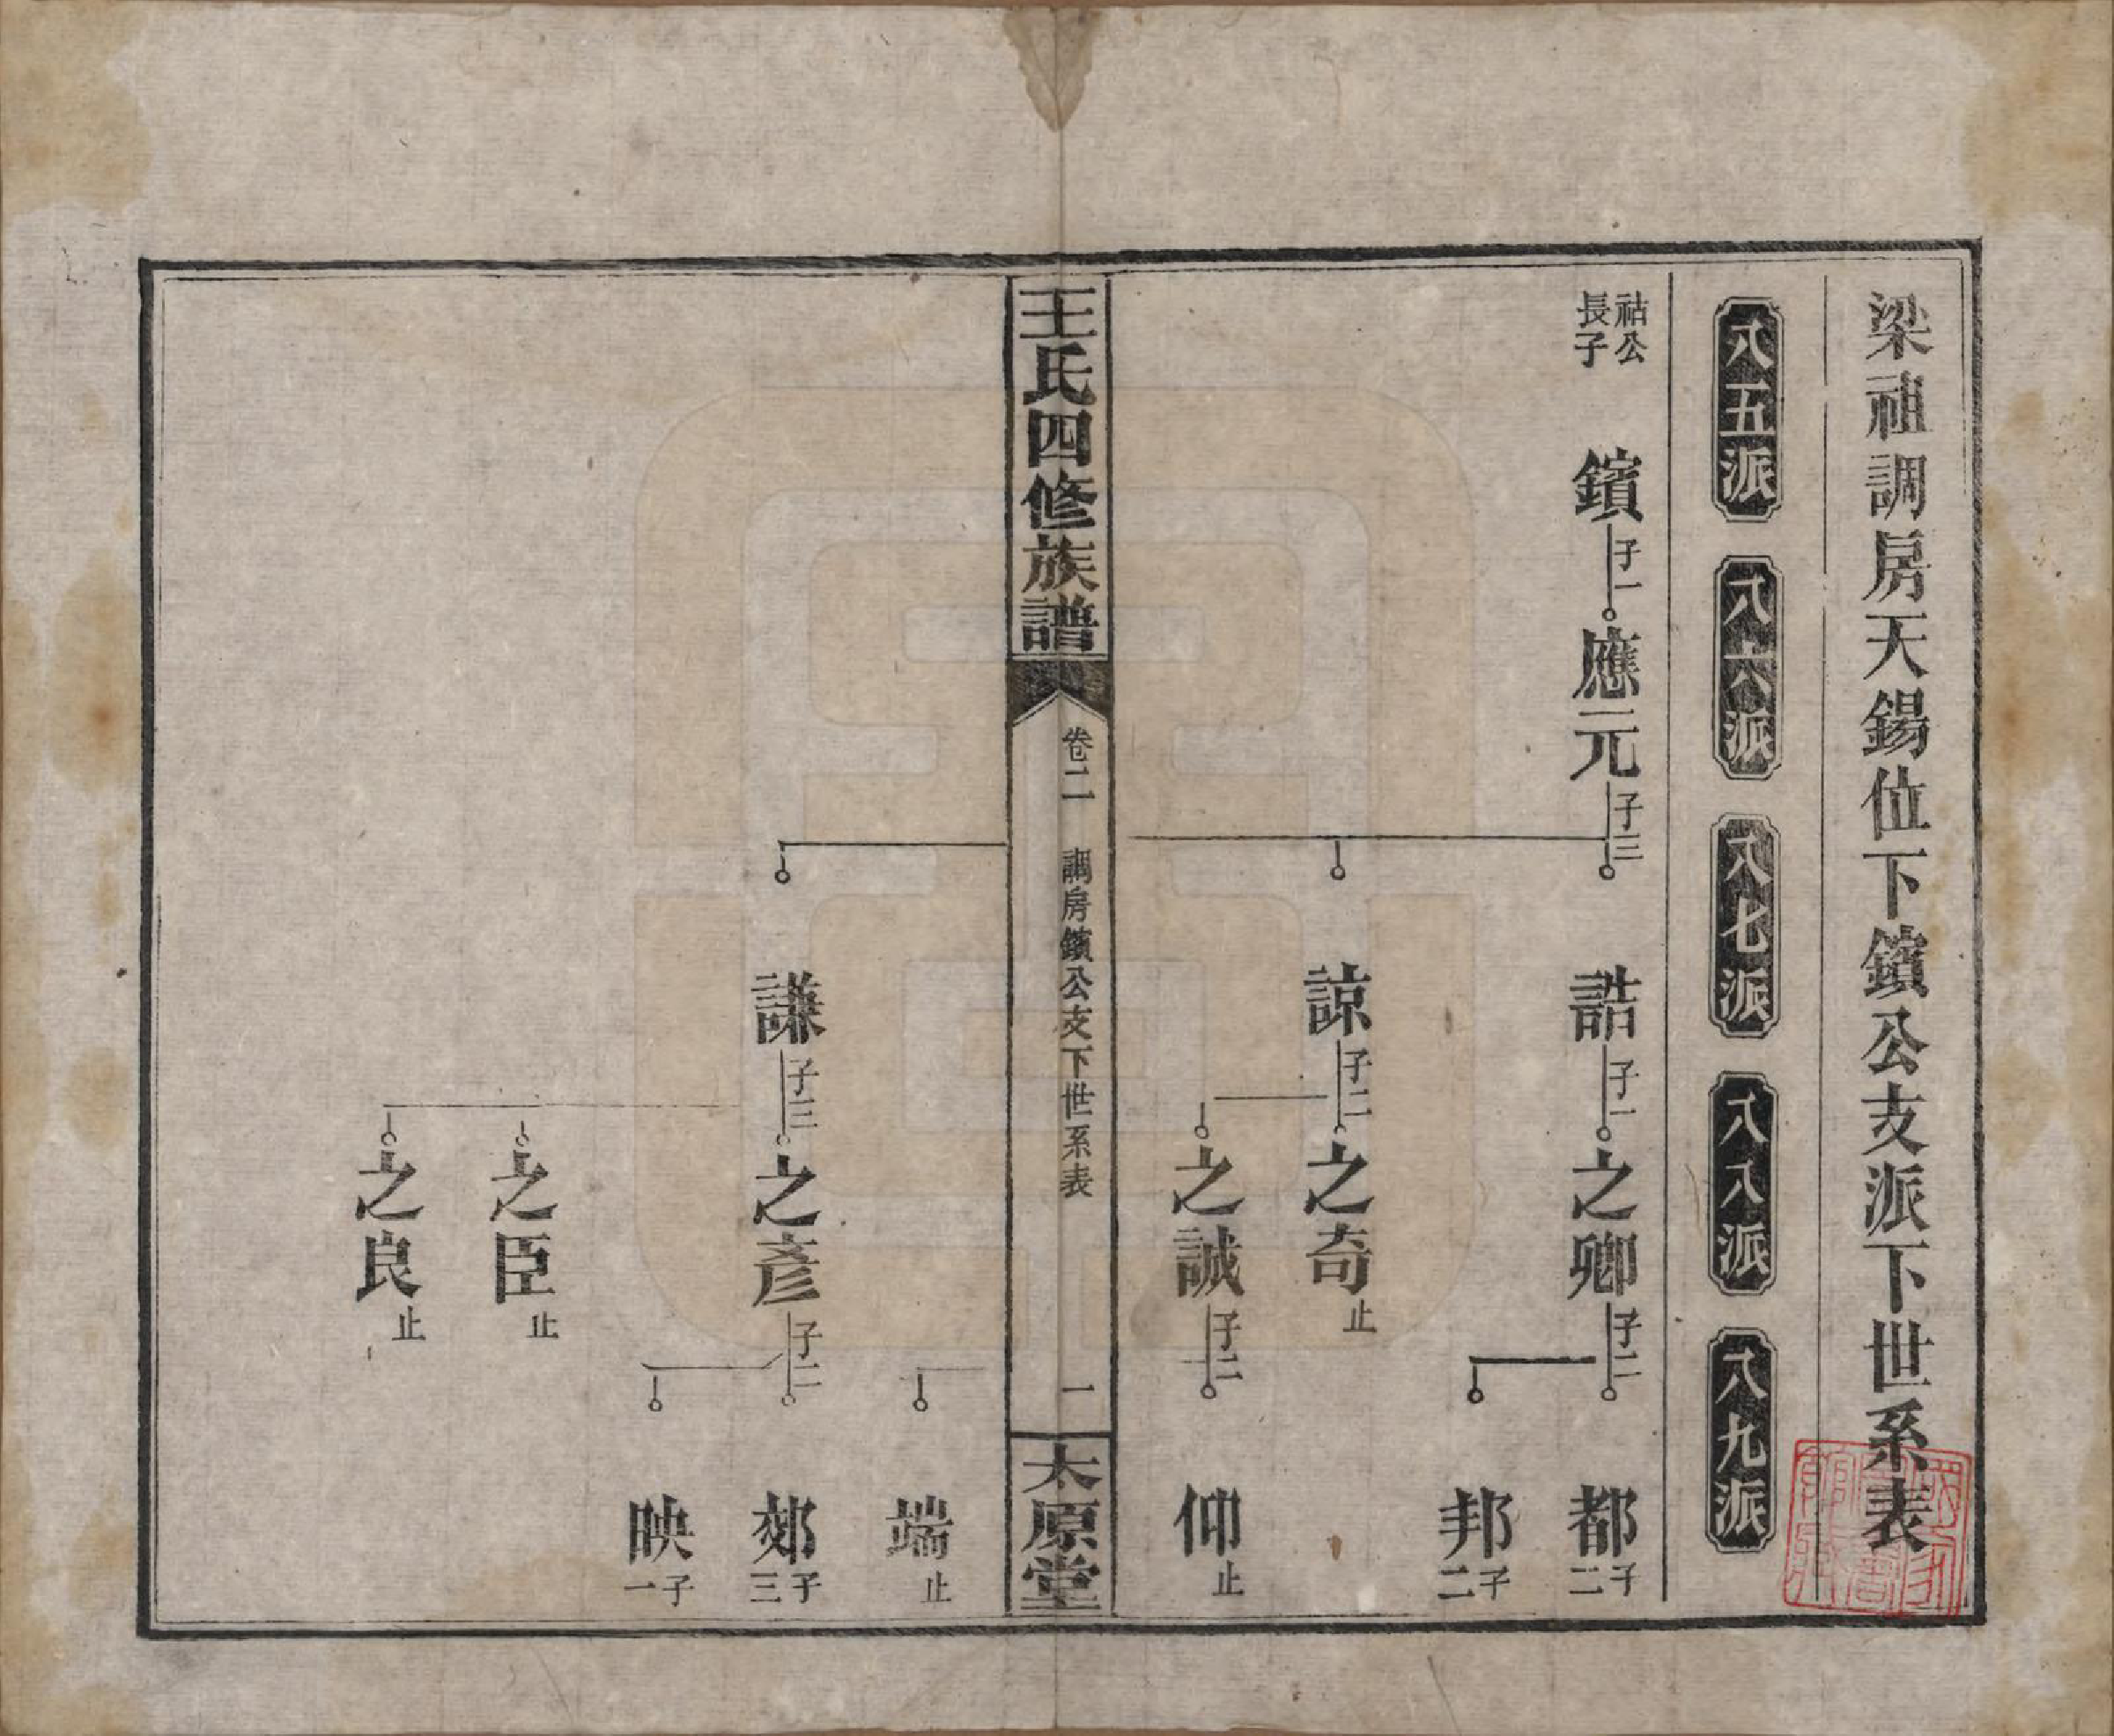 梁祖調房天錫位下鑌公支派下世系表
八五派
八六派
八七派
八八派
八九派
祜公
長子
鑌
子一
應元
子三
誥
子一
之卿
子二
都
子二
邦
子二
諒
子二
之奇
止
之誠
子二
仰
止
王氏四修族譜
卷二
調房鑌公支下世系表
一
太原堂
端
止
謙
子三
之彥
子二
郟
子三
映
子一
之臣
止
之良
止